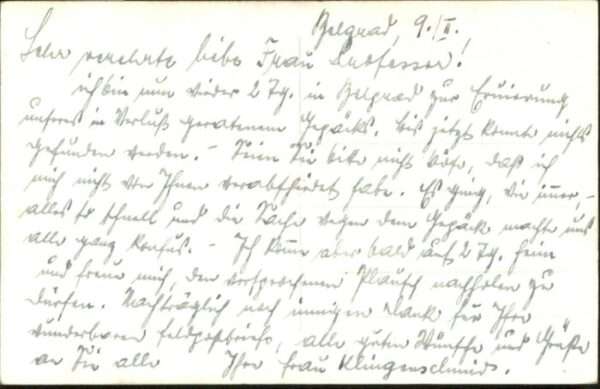 Belgrad, 9./II.
Sehr verehrte liebe Frau Professor!
ich bin nun wieder 2 Tg. in Belgrad zur Eruierung
unseres in Verluſt geratenem Gepäcks. Bis jetzt konnte nichts
gefunden werden. – Seien Sie bitte nicht böse, daß ich
mich nicht von Ihnen verabschiedet habe. Es ging, wie immer, –
alles so schnell und die Sache wegen dem Gepäck machte uns
alle ganz konfus. – Ich komme aber bald auf 2 Tg. heim
und freue mich, den versprochenen Plausch nachholen zu
dürfen. Nachträglich noch innigen Dank für Ihre
wunderbaren Feldpostbriefe, alle guten Wünsche und Grüße
an Sie alle Ihre Frau Klingenschmid.